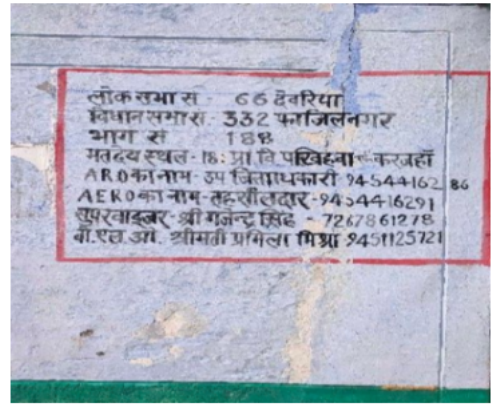 लोक सभा स - 66 देवरिया
विधान सभा स - 332 फाजिलनगर
भाग सं 188
मतदेय स्थल - 18: प्रा वि परिवहना करजहाँ
ARO का नाम - उप जिलाधिकारी 9454416286
AERO का नाम - तहसीलदार - 9454416291
सुपरवाइजर - श्री गजेन्द्र सिंह - 7267861278
बी.एल.ओ. श्रीमती प्रमिला मिश्रा 9451125721